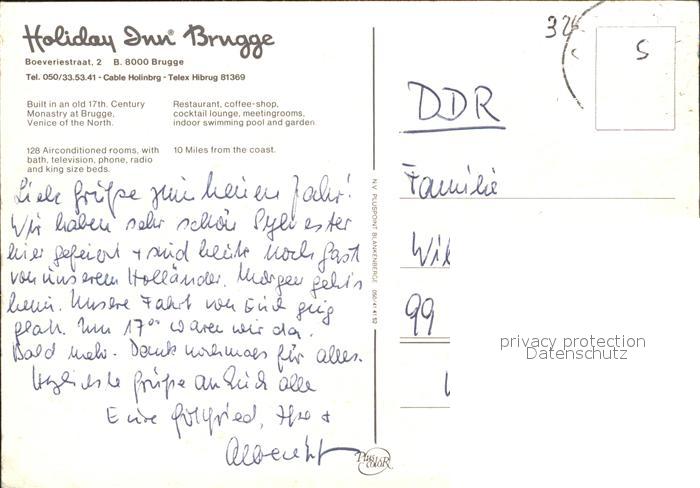 Holiday Inn® Brugge
Boeveriestraat, 2 B. 8000 Brugge
Tel. 050/33.53.41 - Cable Holinbrg - Telex Hibrug 81369
Built in an old 17th. Century
Monastry at Brugge,
Venice of the North.
Restaurant, coffee-shop,
cocktail lounge, meetingrooms,
indoor swimming pool and garden.
128 Airconditioned rooms, with
bath, television, phone, radio
and king size beds.
10 Miles from the coast.
Liebe Grüße zum neuen Jahr!
Wir haben sehr schön Sylvester
hier gefeiert + sind heute noch Gast
von unserem Holländer. Morgen geht's
heim. Unsere Fahrt von Euch ging
glatt. Um 17°° waren wir da.
Bald mehr. Dank nochmals für alles.
Herzlichste Grüße an Euch alle
Eure Gottfried, +
Albrecht
N.V. PLUSPOINT BLANKENBERGE 050/41 41 92
PLUS COLOR
326
S
DDR
Familie
Wil
99
privacy protection
Datenschutz